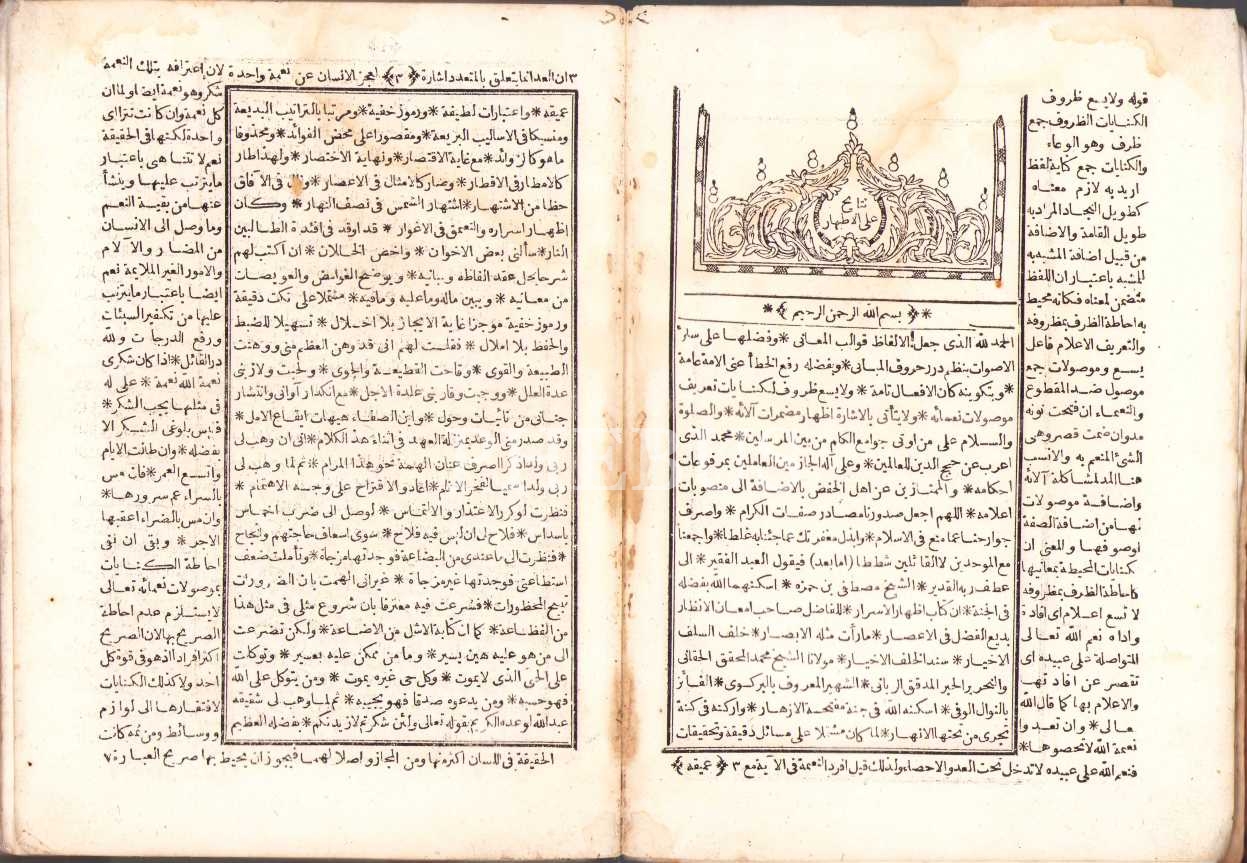 نتايج
على الاظهار
﴿ بسم الله الرحمن الرحيم ﴾
الحمد لله الذى جعل الالفاظ قوالب المعانى * وفضلها على سائر
الاصوات بنظم درر حروف المبانى * وبفضله رفع الخطأ عن الامة عامة
* وبتكوينه كان الافعال تامة * ولا يسع ظروف لكنايات تعريف
موصولات نعمائه * ولا يتأتى بالاشارة اظهار مضمرات آلائه * والصلوة
والسلام على من اوتى جوامع الكلم من بين المرسلين * محمد الذى
اعرب عن حجج الدين للعالمين * وعلى آله الحائزين العاملين بمرفوعات
احكامه * والممتازين عن اهل الخفض بالاضافة الى منصوبات
اعلامه * اللهم اجعل صدورنا مصادر صفات الكرام * واصرف
جوارحنا عما منع فى الاسلام * وابذل مغفرتك عما جئنا به غلطا * واجمعنا
مع الموحدين لا القائلين شططا (اما بعد) فيقول العبد الفقير * الى
عطف ربه القدير * الشيخ مصطفى بن حمزه * اسكنهما الله بفضله
فى الجنة * ان كتاب اظهار الاسرار * للفاضل صاحب امعان الانظار
بديع الفضل فى الاعصار * ما رأت مثله الابصار * خلف السلف
الاخيار * سند الخلف الاخيار * مولانا الشيخ محمد المحقق الحقانى
والنحرير والحبر المدقق الربانى * الشهير المعروف بالبركوى * الفائز
بالنوال الوفى * اسكنه الله فى جنة مفتحة الازهار * واركنه فى كنة
تجرى من تحتها الانهار * لما كان مشتملا على مسائل دقيقة وتحقيقات
قوله ولا يسع ظروف
الكنايات الظروف جمع
ظرف وهو الوعاء
والكنايات جمع كناية لفظ
اريد به لازم معناه
كطويل النجاد المراد به
طويل القامة والاضافة
من قبيل اضافة المشبه به
للمشبه باعتبار ان اللفظ
متضمن لمعناه فكانه محيط
به احاطة الظرف بمظروفه
والتعريف الاعلام فاعل
يسع وموصولات جمع
موصول ضد المقطوع
والنعماء ان فتحت نونه
مدوان ضمت قصر وهى
الشئ المنعم به والانسب
هنا المد لمشاكلة آلائه
واضافة موصولات
لها من اضافة الصفة
لموصوفها والمعنى ان
كنايات المحيطة بمعانيها
كاحاطة الظرف بمظروفه
لا تسع اعلام اى افادة
واداء نعم الله تعالى
المتواصلة على عبيده اى
تقصر عن افادتها
والاعلام بها كما قال الله
تعالى * وان تعدوا
نعمة الله لا تحصوها *
فنعم الله على عبيده لا تدخل تحت العد والاحصاء ولذلك قيل افرد النعمة فى الآية مع ٣ ﴿ عميقه ﴾
٣ ان العد انما يتعلق بالمتعدد اشارة ﴿ ٣ ﴾ لعجز الانسان عن نعمة واحدة لان اعترافه بتلك النعمة
شكر وهو نعمة ايضا ولما ان
كل نعمة وان كانت تترااى
واحدة لكنها فى الحقيقة
نعم لا تتناهى باعتبار
ما يترتب عليها وينشأ
عنها من بقية النعم
وما وصل الى الانسان
من المضار والآلام
والامور الغير الملايمة نعم
ايضا باعتبار ما يترتب
عليها من تكفير السيئات
ورفع الدرجات ولله
در القائل * اذا كان شكرى
نعمة الله نعمة * على له
فى مثلها يجب الشكر *
فليس بلوغى الشكر الا
بفضله * وان طالت الايام
واتسع العمر * فان مس
بالسراء عم سرورها *
وان مس بالضراء اعقبها
الاجر * وبقى ان نفى
احاطة الكنايات
بموصولات نعمائه تعالى
لا يستلزم عدم احاطة
الصريح بها لان الصريح
اكثر افرادا اذ هو فى قوة كل
احد ولا كذلك الكنايات
لافتقارها الى لوازم
ووسائط ومن ثمه كانت
عميقه * واعتبارات لطيفة * ورموز خفية * ومرتبا بالتراتيب البديعة
ومنسبكا فى الاساليب البريعة * ومقصورا على محض الفوائد * ومحذوفا
ما هو كالزوائد * مع غاية الاقتصار * ونهاية الاختصار * ولهذا طار
كالامطار فى الاقطار * وصار كالامثال فى الاعصار * ونال فى الآفاق
حظا من الاشتهار * اشتهار الشمس فى نصف النهار * وكان
اظهار اسراره والتعمق فى الاغوار * قد اوقد فى افئدة الطالبين
النار * سألنى بعض الاخوان * واخص الخلان * ان اكتب لهم
شرحا يحل عقد الفاظه ومبانيه * ويوضح الغوامض والعويصات
من معانيه * ويبين ماله وما عليه وما فيه * مشتملا على نكت دقيقة
ورموز خفية موجزا غاية الايجاز بلا اخلال * تسهيلا للضبط
والحفظ بلا املال * فقلت لهم انى قد وهن العظم منى ووهنت
الطبيعة والقوى * وفاحت القطيعة والجوى * ولحيت ولازنى
عدة العلل * ووجيت وقاربنى علمة الاجل * مع انكدار آوانى وانتشار
جنانى من نائبات وحول * واين الصفاء هيهات ايقاع الامل *
وقد صدر منى الوعد بمنزلة العهد فى اثناء هذا الكلام * انى ان وهب لى
ربى ولدا ذكرا اصرف عنان الهمة نحو هذا المرام * ثم لما وهب لى
ربى ولدا سميا لفخر الانام * اعادوا الاقتراح على وجه الاهتمام *
فنظرت لو كرر الاعتذار والالتماس * لوصل الى ضرب اخماس
باسداس * فلاح لى ان ليس فيه فلاح * سوى اسعاف حاجتهم وانجاح
* فنظرت الى ما عندى من البضاعة فوجدتها مزجاة * وتأملت ضعف
استطاعتى فوجدتها غير مزجاة * غير انى الهمت بان الضرورات
تبيح المحظورات * فشرعت فيه معترفا بان شروع مثلى فى مثل هذا
من الفظاعة * كما ان كتابة الامثل من الاضاعة * ولكن تضرعت
الى من هو عليه هين يسير * وما من ممكن عليه بعسير * وتوكلت
على الحى الذى لا يموت * وكل حى غيره يموت * ومن يتوكل على الله
فهو حسبه * ومن يدعوه صدقا فهو يجيبه * ثم لما وهب لى شقيقه
عبد الله لوعده الكريم بقوله تعالى ولئن شكرتم لازيدنكم * بفضله العظيم
الحقيقة فى اللسان اكثر منها ومن المجاز واصلا لهما فيجوز ان يحيط بها صريح العبارة ٧